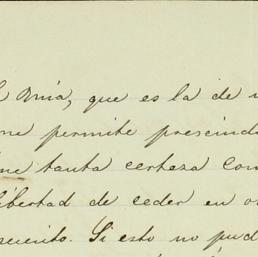 mía, que es la de
permite prescind
tanta certeza con
libertad de ceder en o
Si esto no pud